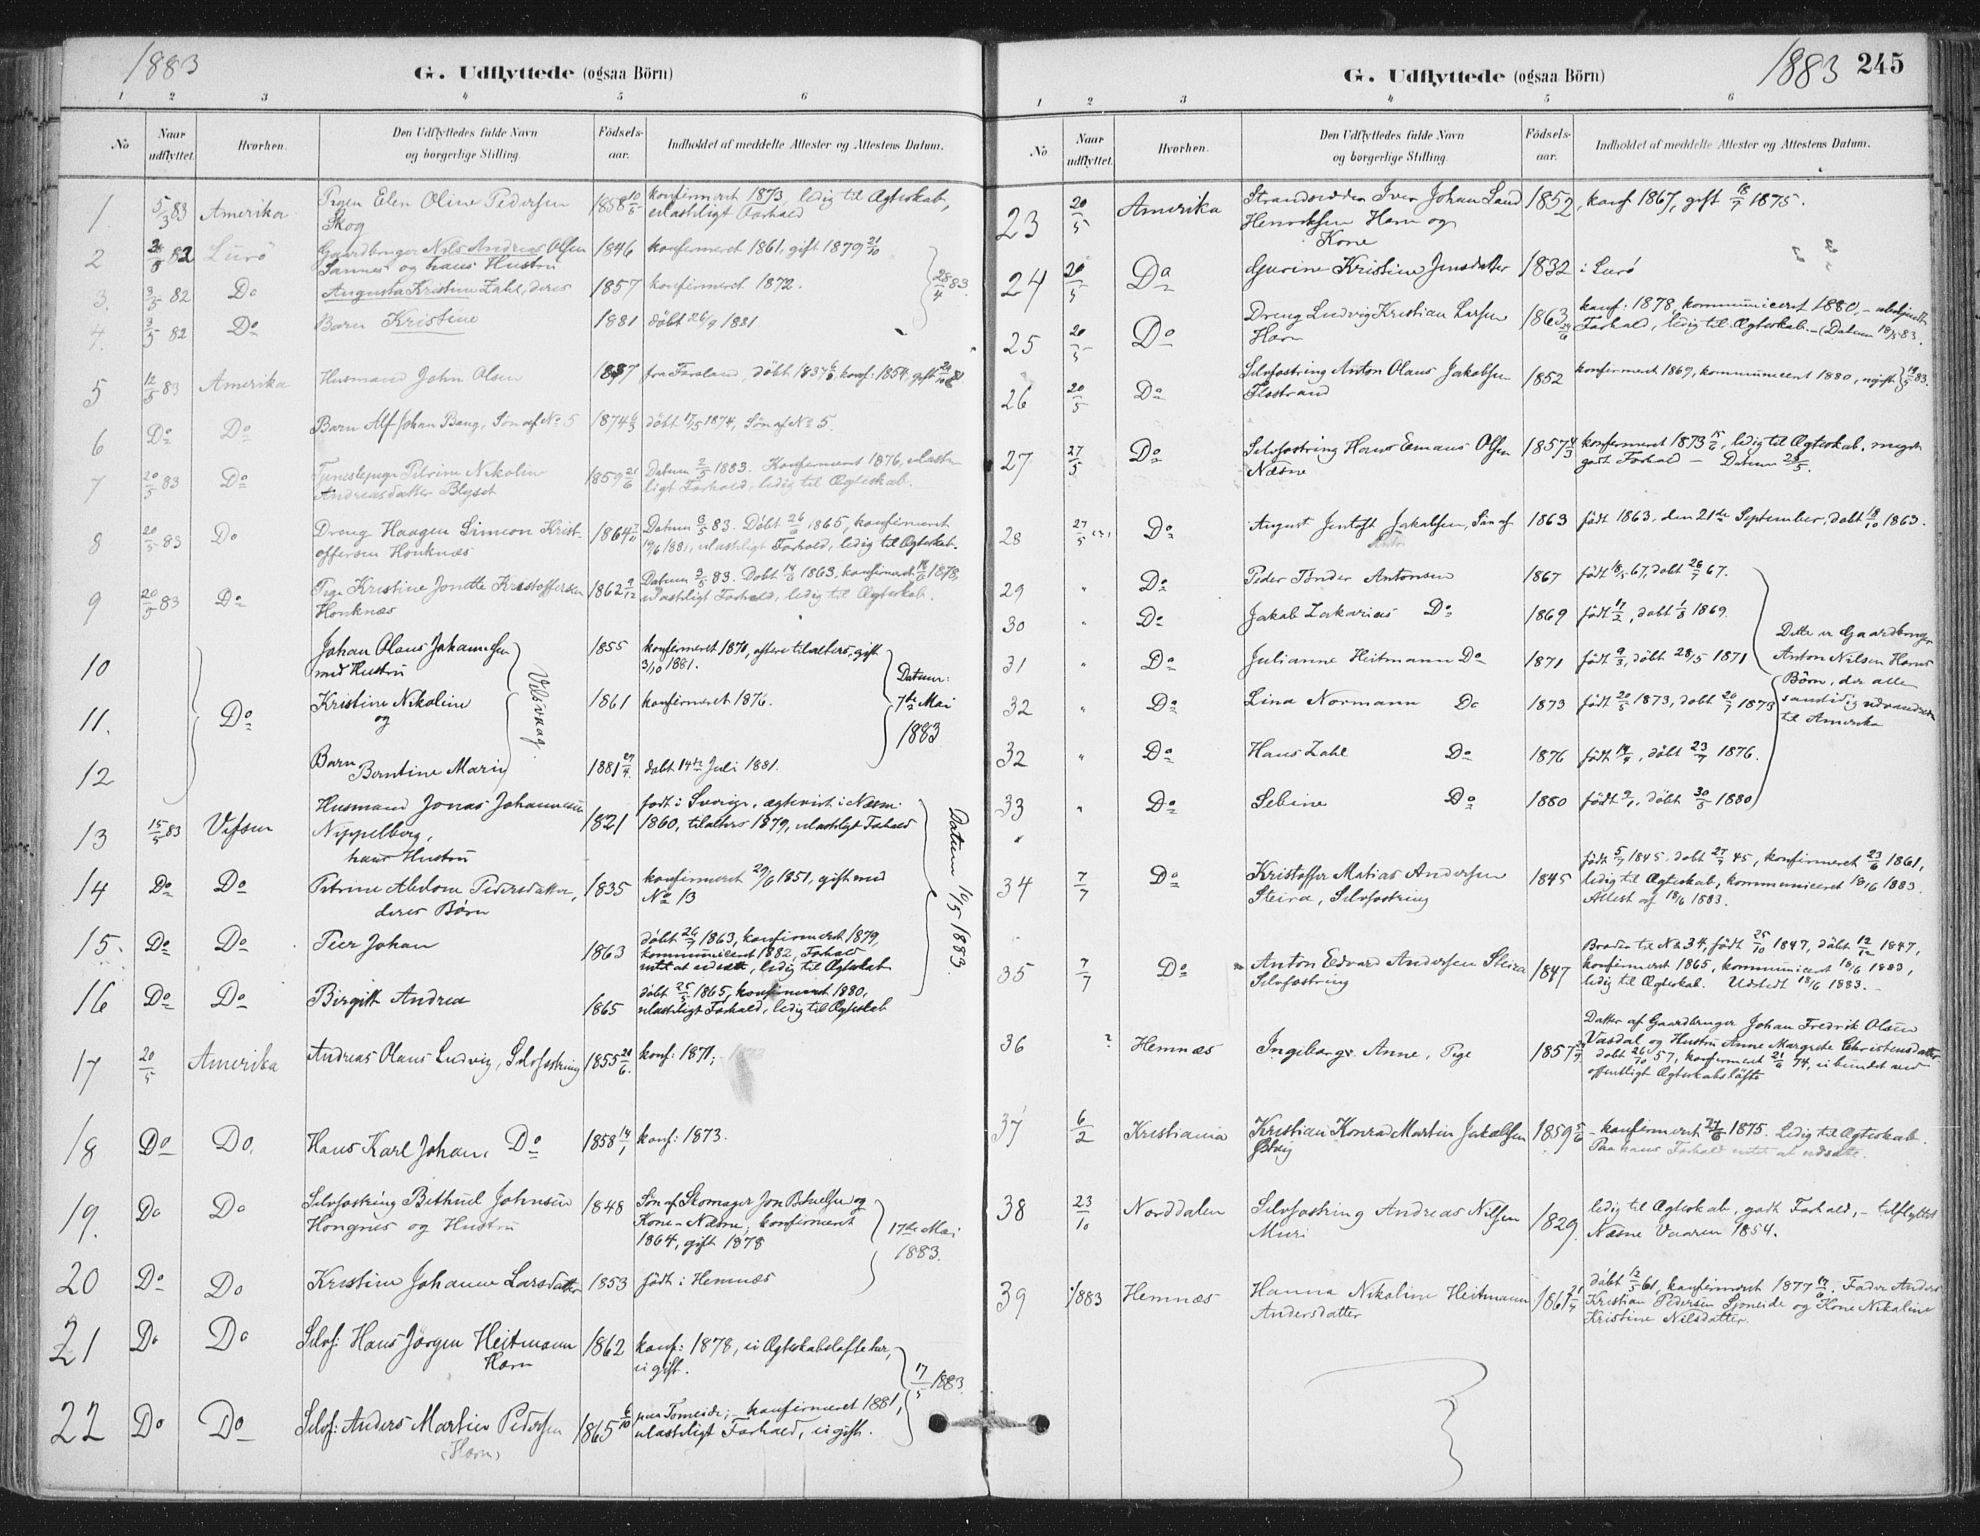 1883
G. Udflyttede (ogsaa Börn)
1 2 3 4 5 6
No
Naar udflyttet.
Hvorhen.
Den Udflyttedes fulde Navn og borgerlige Stilling.
Födselsaar.
Indholdet af meddelte Attester og Attestens Datum.
1 5/3 83 Amerika Pigen Elen Oline Pedersen 1858 10/5 konfirmeret 1873, ledig til Ægteskab,
Skog ulastligt Forhold
2 3/5 82 Lurö Gaardbruger Nils Andreas Olsen 1846 konfirmeret 1861, gift 1879 21/10
Sannes og hans Hustru
3. 3/5 82 Do Augusta Kristine Zahl, deres 1857 konfirmeret 1872. 28/4 83.
4. 3/5 82 Do Barn Kristine 1881 döbt 26/9 1881.
5 12/5 83 Amerika Husmand John Olsen 1837 fra Forsland, döbt 1837, konf. 1854, gift
6 Do Do Barn Alf Johan Bang, Sön af No 5 1874 döbt 17/5 1874, Sön af No 5.
7 20/5 83 Do Tjenestepige Petrine Nikoline 1859 21/6 Datum 2/5 1883. Konfirmeret 1876, ulast-
Andreasdatter Blyset ligt Forhold, ledig til Ægteskab.
8 20/5 83 Do Dreng Haagen Simeon Krist- 1864 Datum 3/5 83. Döbt 26/ 1865, konfirmeret
offersen Honknæs 19/6 1881, ulastligt Forhold, ledig til Ægteskab.
9 20/5 83 Do Pige Kristine Jonette Kristoffersen 1862 9/12 Datum 3/5 83. Döbt 1863, konfirmeret 1878,
Honknæs ulastligt Forhold, ledig til Ægteskab.
10 Johan Olaus Johannesen 1855 konfirmeret 1870, oftere tilalters, gift
med Hustru 3/10 1881.
11. Do Kristine Nikoline 1861 konfirmeret 1876.
og
Vilsvaag.
Datum:
7de Mai
1883
12 Barn Berntine Marie 1881 27/4 döbt 14de Juli 1881.
13 15/5 83 Vefsen Husmand Jonas Johannesen 1821 födt i Sverige, ægteviet i Næsne
Nippelberg, 1860, tilalters 1879, ulastligt Forhold
hans Hustru
14 Do Do Petrine Abelone Pedersdatter, 1835 konfirmeret 29/6 1851, gift med
deres Börn No 13
15. Do Do Peer Johan 1863 döbt 26/7 1863, konfirmeret 1879,
kommuniceret 1882, Forhold
intet at udsætte, ledig til Ægteskab
16 Do Do Birgitt Andrea 1865 döbt 25/5 1865, konfirmeret 1880,
ulastligt Forhold, ledig til Ægteskab
Datum 16/5 1883.
17 20/5 Amerika Andreas Olaus Ludvig, Selvfostring 1855 20/6 konf: 1871,
18 Do Do. Hans Karl Johan, Do 1858 14/1 konf: 1873.
19. Do Do Selvfostring Bethuel Johnsen 1848 Sön af Skomager Jon Betuelsen og
Hongnes og Hustru Kone Næsne; konfirmeret
1864, gift 1878
17de Mai
1883.
20 Do Do Kristine Johanne Larsdatter 1853 födt i Hemnæs
21 Do Do Selvf: Hans Jörgen Heitmann 1862 konf: 1878, ei Ægteskabslöfte her,
Horn ei gift.
22 Do Do Selvf: Anders Martin Pedersen 1865 6/10 paa Tomeide; konfirmeret 1881,
(Horn) ulastligt Forhold, ei gift.
17/5 1883.
1883 245
G. Udflyttede (ogsaa Börn)
1 2 3 4 5 6
No
Naar udflyttet.
Hvorhen.
Den Udflyttedes fulde Navn og borgerlige Stilling.
Födselsaar.
Indholdet af meddelte Attester og Attestens Datum.
23 20/5 Amerika Strandsidder Iver Johan Lund 1852, konf 1867, gift 18/7 1875.
Henriksen Horn og
Kone
24 20/5 Do Gurine Kristine Jensdatter 1832 i Lurö
25 20/5 Do Dreng Ludvig Kristian Larsen 1863 konf: 1878, kommuniceret 1880,
Horn Forhold, ledig til Ægteskab. (Datum 18/5 83.
26 20/5 Do Selvfostring Anton Olaus Jakobsen 1852 konfirmeret 1869, kommuniceret 1880, ugift 19/5 83.
Flostrand
27 27/5 Do Selvfostring Hans Emaus Olsen 1857 4/3 konfirmeret 1873 15/6, ledig til Ægteskab, meget
Næsne godt Forhold — Datum 23/5.
28 27/5 Do August Jentoft Jakobsen, Sön af 1863 födt 1863, den 21de September, döbt 18/10 1863.
29 " Do Peder Tönder Antonsen 1867 födt 18/5 67, döbt 28/7 67.
30 " Do Jakob Zakarias Do 1869 födt 17/2, döbt 1/8 1869.
31 " Do Julianne Heitmann Do 1871 födt 9/3, döbt 28/5 1871
32 " Do Lina Normann Do 1873 födt 20/5 1873, döbt 20/7 1873
32 " Do Hans Zahl Do 1876 födt 14/4, döbt 23/7 1876.
33 " Do Sebine Do 1880 födt 9/1, döbt 30/5 1880
Dette er Gaardbruger
Anton Nilsen Horns
Börn, der alle
samtidig udvandrede
til Amerika
34 7/7 Do Kristoffer Matias Andersen 1845 födt 5/7 1845, döbt 27/7 45, konfirmeret 23/6 1861,
Steira, Selvfostring ledig til Ægteskab, kommuniceret 18/6 1883.
Attest af 18/6 1883.
35 7/7 Do Anton Edvard Andersen Steira 1847 Broder til No 34, födt 25/10 1847, döbt 12/12 1847,
Selvfostring konfirmeret 1865, kommuniceret 18/6 1883,
ledig til Ægteskab. Udstedt 18/6 1883.
36 ? Hemnæs Ingeborg Anne, Pige 1857 Datter af Gaardbruger Johan Fredrik Olsen
Vasdal og Hustru Anne Margrete Christensdatter
döbt 26/10 57, konfirmeret 21/6 74, ei bundet ved
offentligt Ægteskabslöfte
37 6/2 Kristiania Kristian Konrad Martin Jakobsen 1859 5/6 - konfirmeret 27/6 1875. Ledig til Ægteskab.
Östvig Paa hans Forhold intet at udsætte.
38 23/10 Norddalen Selvfostring Andreas Nilsen 1829. ledig til Ægteskab, godt Forhold, - tilflyttet
Muri Næsne Vaaren 1854.
39 1883 Hemnæs Hanna Nikoline Heitmann 1861 döbt 12/5 61, konfirmeret 1877 17/6. Fader Anders
Andersdatter Kristian Pedersen Sjoneide og Kone Nikoline
Kristine Nilsdatter.